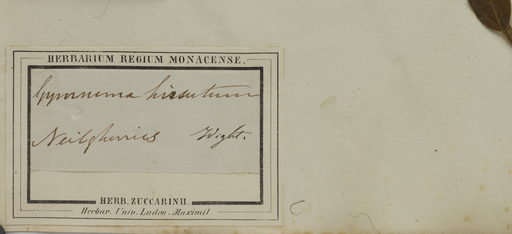 HERBARIUM REGIUM MONACENSE.
Gymnema hirsutum
Neilgherries Wight.
HERB. ZUCCARINII.
Herbar. Univ. Ludov. Maximil.